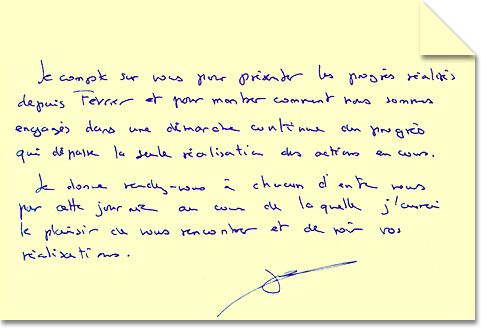 Je compte sur vous pour présenter les progrès réalisés
depuis Février et pour montrer comment nous sommes
engagés dans une démarche continue du progrès
qui dépasse la seule réalisation des actions en cours.
Je donne rendez-vous à chacun d'entre vous
pour cette journée au cours de laquelle j'aurai
le plaisir de vous rencontrer et de voir vos
réalisations.